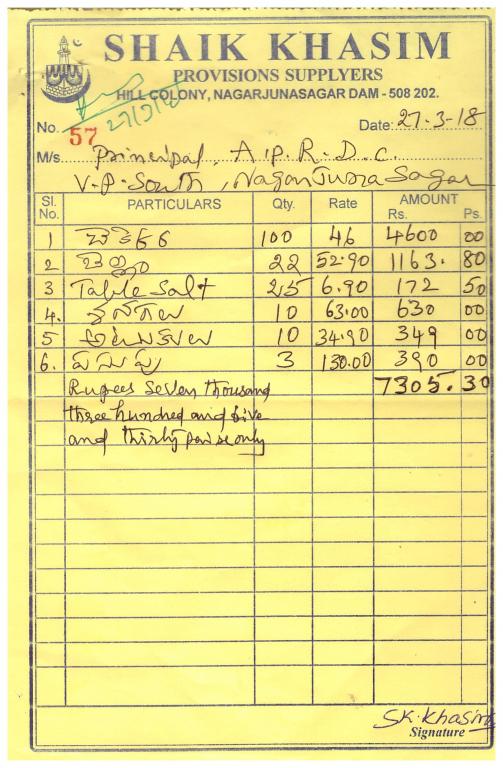 SHAIK KHASIM
PROVISIONS SUPPLYERS
HILL COLONY, NAGARJUNASAGAR DAM - 508 202.
27/3/18
No. 57 Date: 27-3-18
M/s. Principal, A.P.R.D.C.
V.P. South, Nagarjuna Sagar
Sl. No. PARTICULARS Qty. Rate AMOUNT Rs. Ps.
1 100 46 4600 00
2 22 52.90 1163. 80
3 Table Salt 25 6.90 172 50
4. 10 63.00 630 00
5 10 34.90 349 00
6. పసుపు 3 130.00 390 00
Rupees Seven thousand 7305. 30
three hundred and five
and thirty paise only
SK. Khasim
Signature